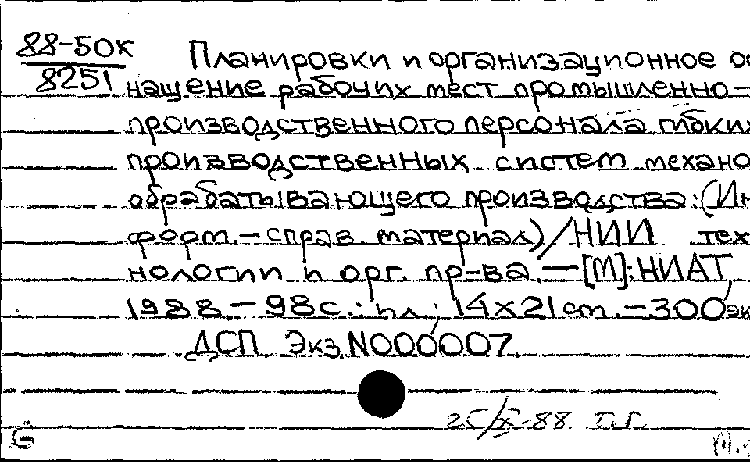 88-50к
8251
Планировки и организационное ос
нащение рабочих мест промышленно-
производственного персонала гибких
производственных систем механо
обрабатывающего производства: (Ин
форм.-справ. материал)/НИИ тех
нологии и орг. пр-ва.—[М]: НИАТ
1988-98с.: ил; 14х21 cm.-300 эк
ДСП Экз.N000007.
25/X-88. Т.Г.
G